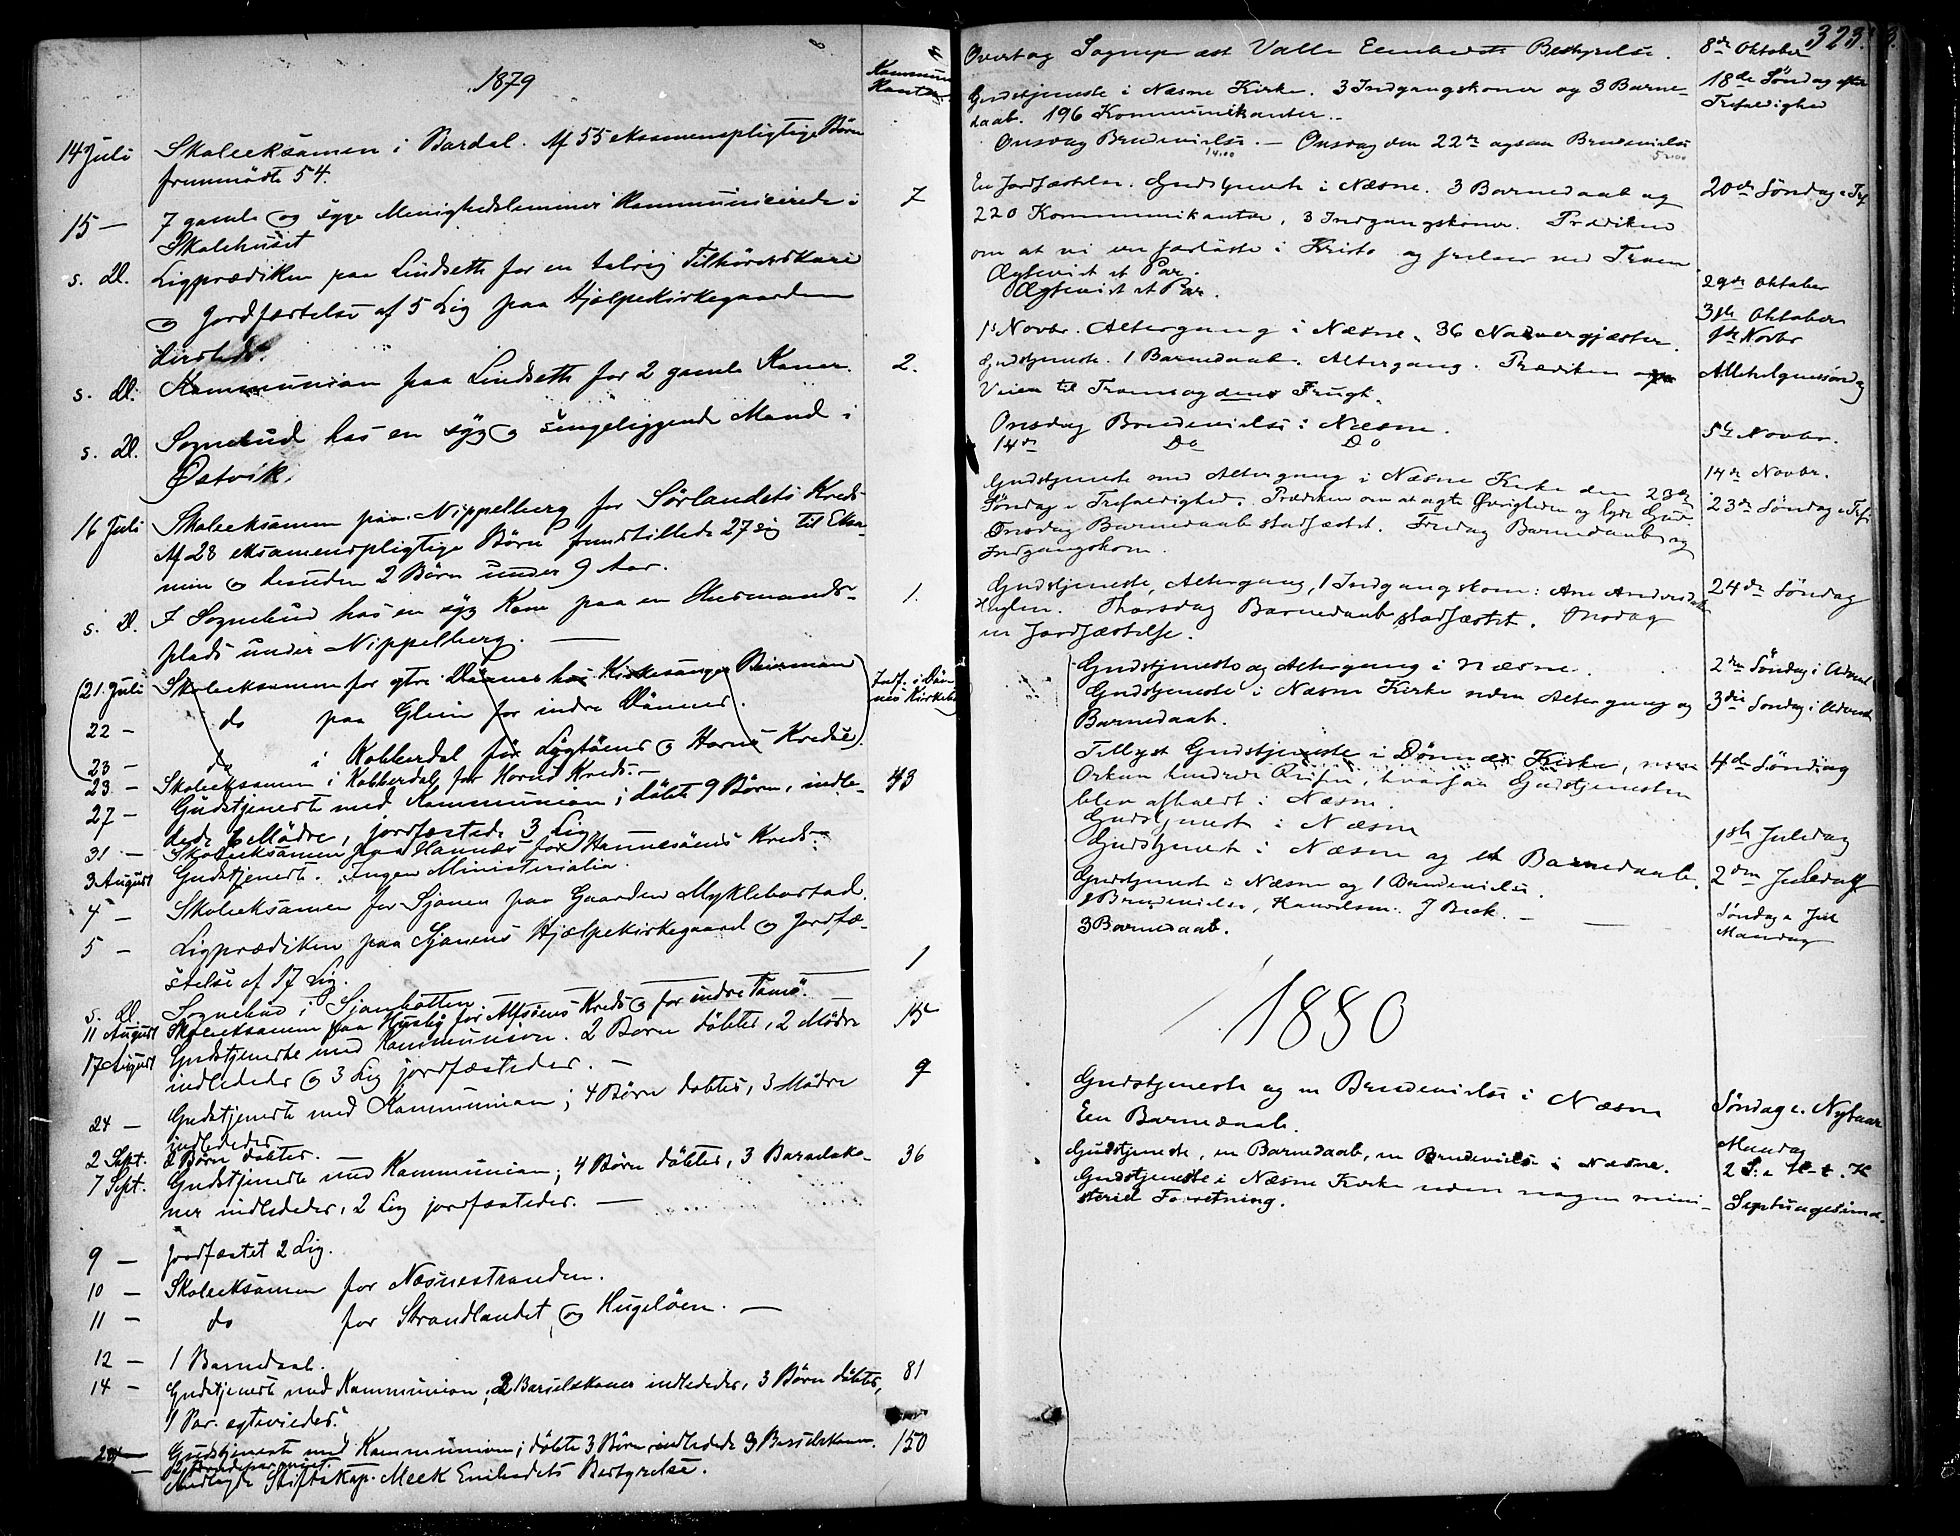 1879
Kommuni
Kanter
14 Juli Skoleeksamen i Bardal. Af 55 eksamenspligtige Börn
fremmödte 54.
15 — 7 gamle og syge Menighedslemmer kommunicerede i 7
Skolehuset
s. D. Ligprædiken paa Lindseth for en talrig Tilhörerskare
og Jordfæstelse af 5 Lig paa Hjælpekirkegaarden
dersteds.
s. D. Kommunion paa Lindseth for 2 gamle Koner. 2.
s. D. Sognebud hos en syg og sengeliggende Mand i
Östvik.
16 Juli Skoleeksamen paa Nippelberg for Sörlandets Kreds
Af 28 eksamenspligtige Börn fremstillede 27 sig til Eksa-
men og desuden 2 Börn under 9 Aar.
s. D. I Sognebud hos en syg Kone paa en Husmands- 1.
plads under Nippelberg. —
(21. Juli Skoleeksamen for ytre Dönnes hos Kirkesanger Beirman Indf. i Dön
22 — do paa Glein for indre Dönnes. nes Kirkebog
23 — do i Kobberdal for Lögtöens og Horns Kredse).
23 — Skoleeksamen i Kobberdal for Horns Kreds. —
27 — Gudstjeneste med Kommunion; döbte 9 Börn, indle- 43
dede 6 Mödre, jordfæstede 3 Lig
31 — Skoleeksamen paa Hannes for Hannesöens Kreds.
3 August Gudstjeneste. Ingen Ministerialia.
4 — Skoleeksamen for Sjonen paa Gaarden Myklebostad.
5 — Ligprædiken paa Sjonens Hjælpekirkegaard og Jordfæ-
stelse af 17 Lig. 1
s. D. Sognebud i Sjonbotten
11 August Skoleeksamen paa Husby for Alfsöens Kreds og for indre Tomö.
17 August Gudstjeneste med Kommunion. 2 Börn döbtes, 2 Mödre 15
indlededes og 3 Lig jordfæstedes. —
24 — Gudstjeneste med Kommunion; 4 Börn döbtes, 3 Mödre 9
indlededes
2 Sept. 2 Börn döbtes. —
7 Sept. Gudstjeneste med Kommunion; 4 Börn döbtes, 3 Barselsko- 36
ner indlededes, 2 Lig jordfæstedes. —
9 — Jordfæstet 2 Lig.
10 — Skoleeksamen for Næsnestranden.
11 — do for Strandlandet og Hugelöen. —
12 — 1 Barnedaab.
14 — Gudstjeneste med Kommunion, 2 Barselskoner indlededes, 3 Börn döbtes, 81
1 Par. egteviedes.
Gudstjeneste med Kommunion; döbte 3 Börn, indledede 3 Barselskoner. 150
2 Brudepar viet.
Nedlagde Stiftskap. Meek Embedets Bestyrelse.
323.
Overtog Sognepræst Valle Embedets Bestyrelse. 8de Oktober
Gudstjeneste i Næsne Kirke. 3 Indgangskoner og 3 Barne- 18de Söndag efter
daab. 196 Kommunikanter. Trefoldighed
Onsdag Brudevielse. — Onsdag den 22de ogsaa Brudevielse
En Jordfæstelse. Gudstjeneste i Næsne. 3 Barnedaab og 20de Söndag e. Tref
220 Kommunikanter, 3 Indgangskoner. Prædiken
om at vi ere forlöste i Kristo og frelser ved Troen
Ægteviet et Par. 29de Oktober
Ægteviet et Par. 31te Oktober
1ste Novbr. Altergang i Næsne. 36 Nadvergjæster. 1ste Novbr
Gudstjeneste. 1 Barnedaab. Altergang. Prædiken Allehelgenssöndag
Veien til Troens og dens Frugt.
Onsdag Brudevielse i Næsne. 5te Novbr.
14de Do Do 14de Novbr.
Gudstjeneste med Altergang i Næsne Kirke den 23de 23de Söndag e. Tref
Söndag e. Trefoldighed. Prædiken om at agte Övrigheden og lyde Gud.
Onsdag Barnedaab stadfæstet. Fredag Barnedaab og
Indgangskone.
Gudstjeneste, Altergang, 1 Indgangskone: Ane Andersdatter 24de Söndag
Huglen. Thorsdag Barnedaab stadfæstet. Onsdag
en Jordfæstelse.
Gudstjeneste og Altergang i Næsne. 2den Söndag i Advent
Gudstjeneste i Næsne Kirke uden Altergang og 3die Söndag i Advent
Barnedaab.
Tillyst Gudstjeneste i Dönnes Kirke, men 4de Söndag
Orkan hindrede Reisen, hvorfor Gudstjenesten
blev afholdt i Næsne.
Gudstjeneste i Næsne 1ste Juledag
Gudstjeneste i Næsne og et Barnedaab. 2den Juledag
Gudstjeneste i Næsne og 1 Brudevielse. Söndag e Jul
1 Brudevielse, J Beck. — Mandag
3 Barnedaab.
1880
Gudstjeneste og en Brudevielse i Næsne Söndag e. Nytaar
Een Barnedaab. Mandag
Gudstjeneste, en Barnedaab, en Brudevielse i Næsne. 2 S. e H. t. K
Gudstjeneste i Næsne Kirke uden nogen mini- Septuagesima.
steriel Forretning.